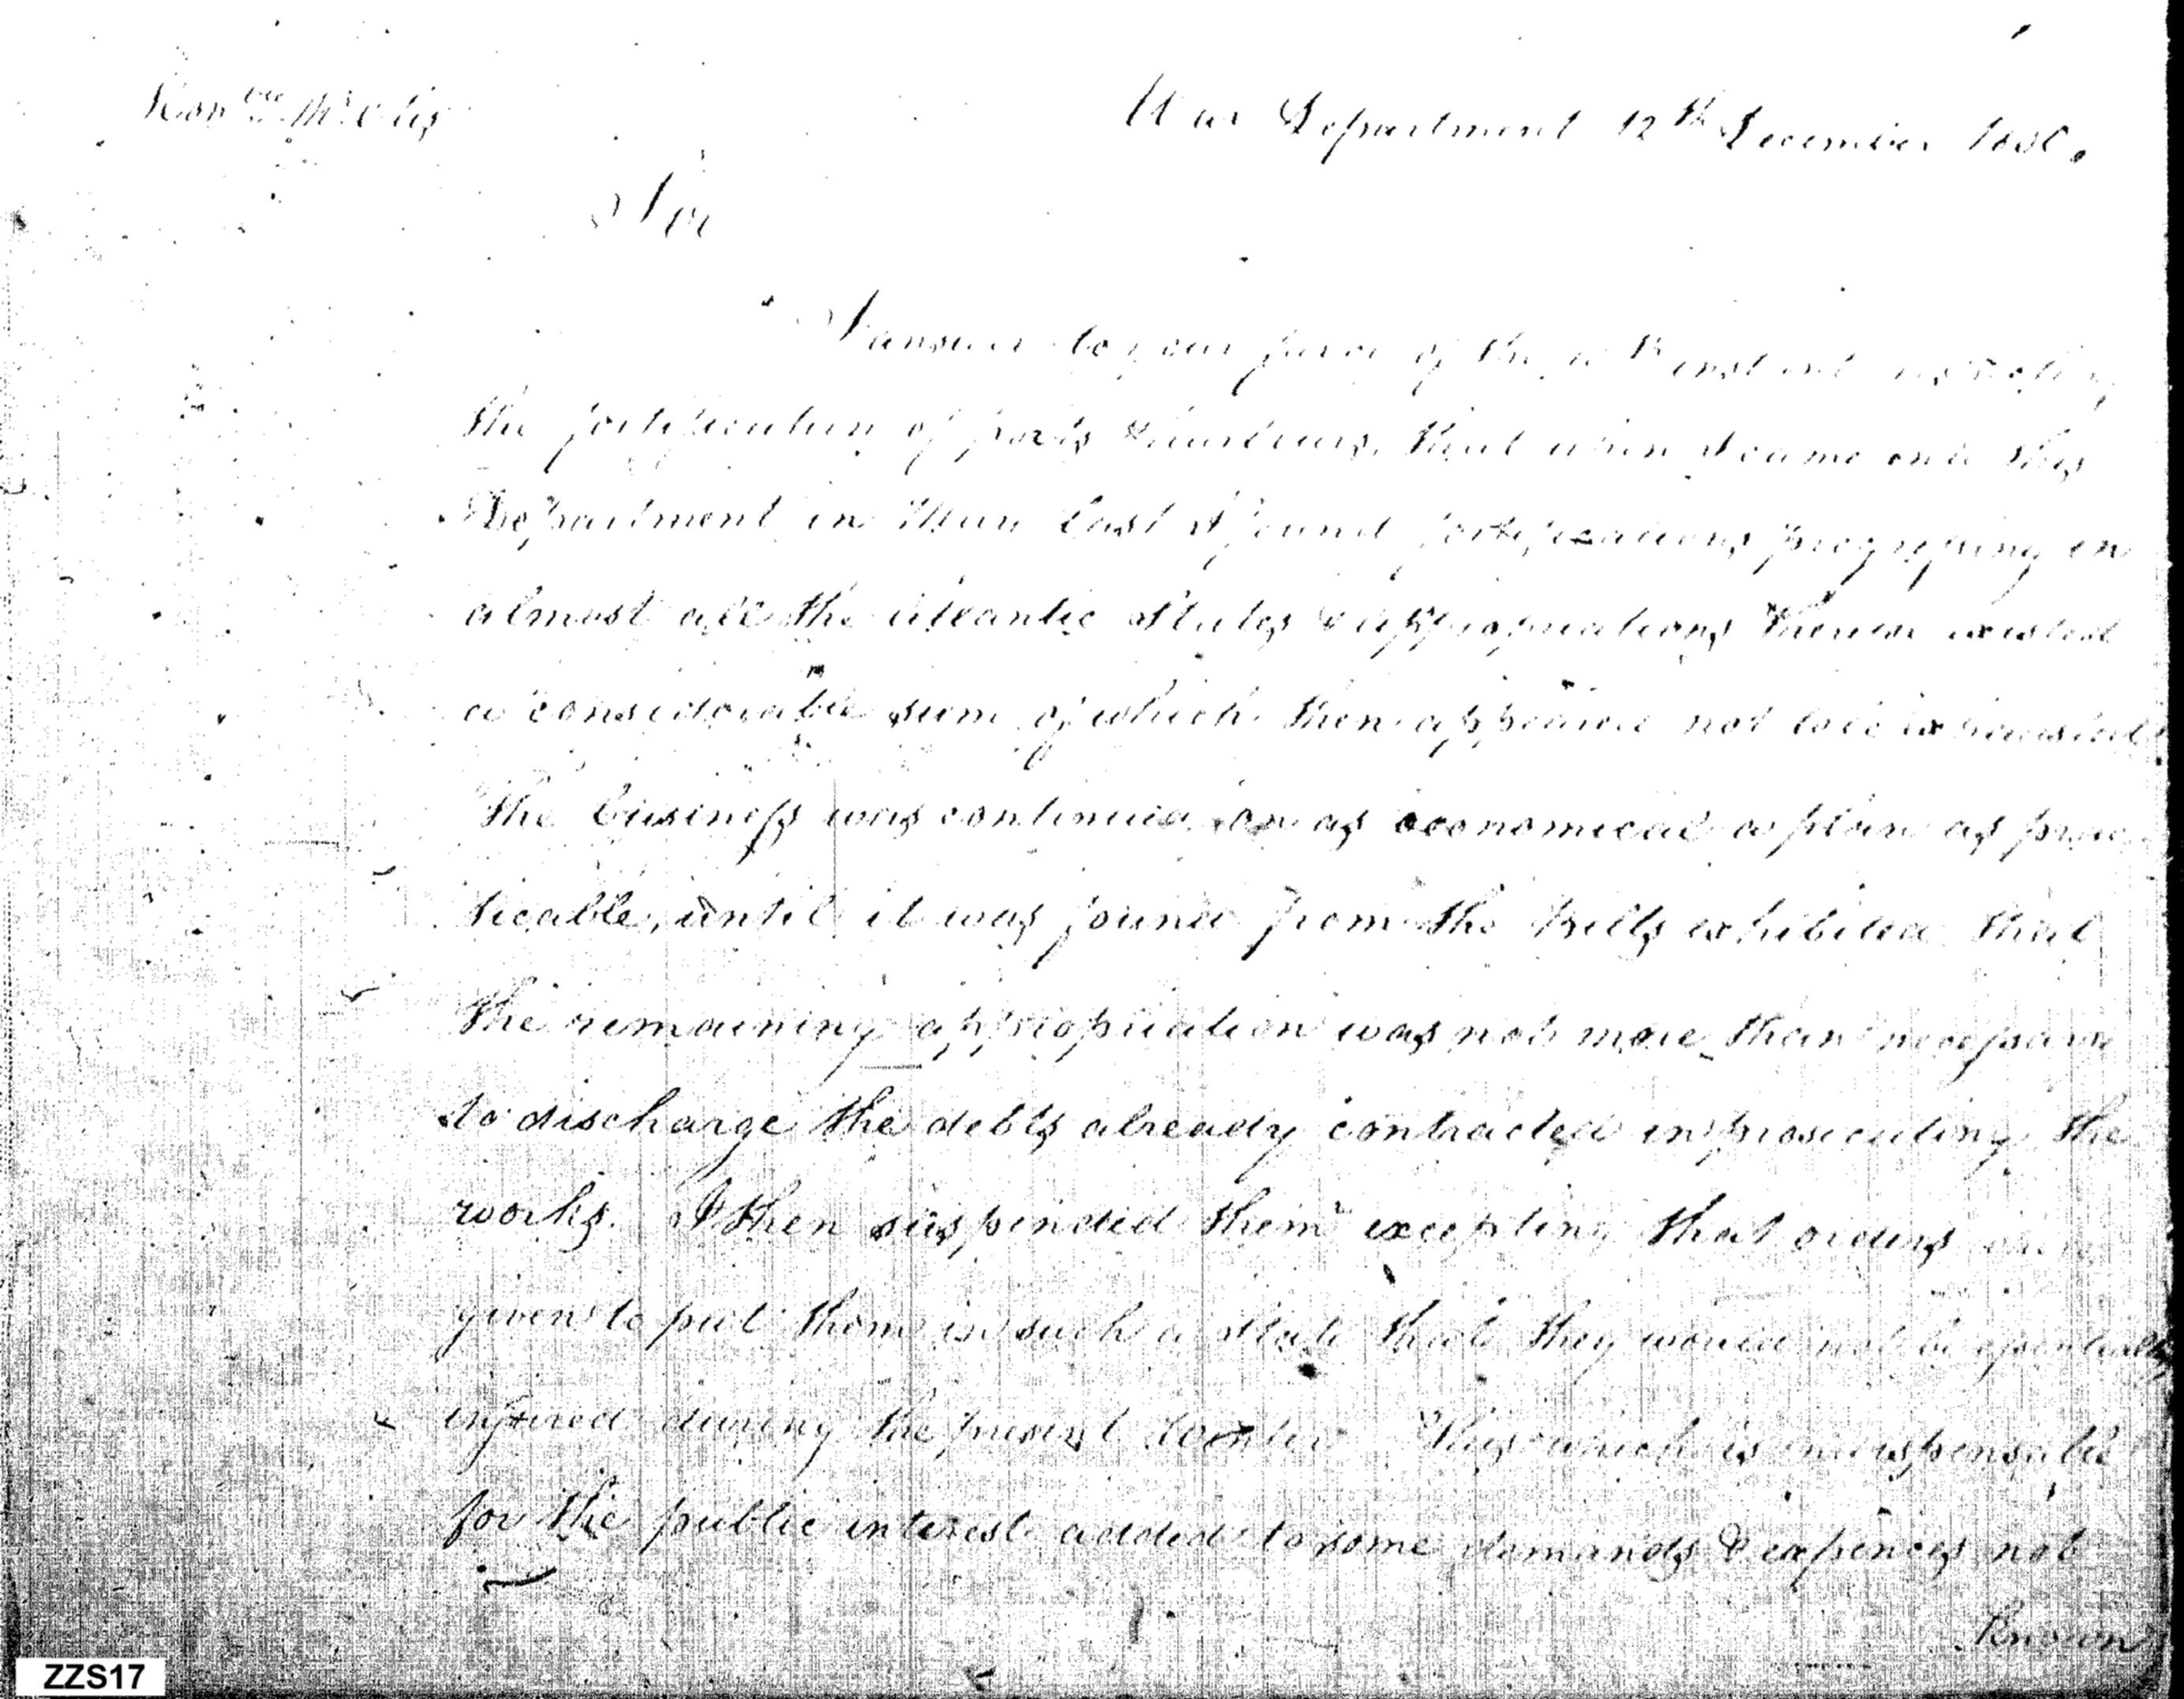 Hon.ble Mr. Otis
War Department 12th December 1800.
Sir
I answer to your favor of the instant respecting
the fortification of ports & harbours, that when I came on to this
Department in May last I found fortifications progressing in
almost all the Atlantic States & appropriations therefor existed
a considerable sum of which then appeared not to be expended
The business was continued on as economical a plan as prac
ticable, until it was found from the bills exhibited that
the remaining appropriation was not more than necessary
to discharge the debts already contracted in prosecuting the
works. I then suspended them excepting that orders were
given to put them in such a state that they would not be essentially
injured during the present winter This which is indispensable
for the public interest added to some demands & expences not
Known
ZZS17